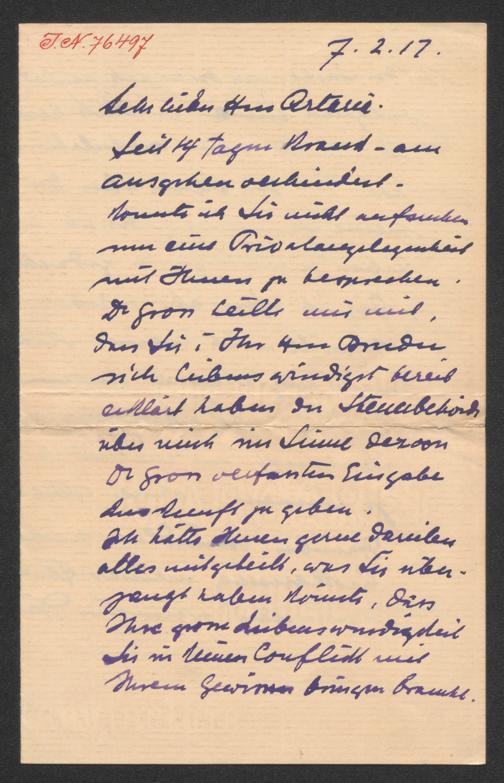 I.N. 76497
7. 2. 17.
Sehr lieber Herr Artaria.
Seit 14 Tagen krank – am
Ausgehen verhindert –
konnte ich Sie nicht aufsuchen
um eine Privatangelegenheit
mit Ihnen zu besprechen.
Dr Gross teilte mir mit,
dass Sie & Ihr Herr Bruder
sich liebenswürdigst bereit
erklärt haben der Steuerbehörde
über mich im Sinne der von
Dr Gross verfassten Eingabe
Auskunft zu geben.
Ich hätte Ihnen gerne darüber
alles mitgeteilt, was Sie über-
zeugt haben konnte, dass
Ihre grosse Liebenswürdigkeit
Sie in keinen Conflict mit
Ihrem Gewissen bringen braucht.